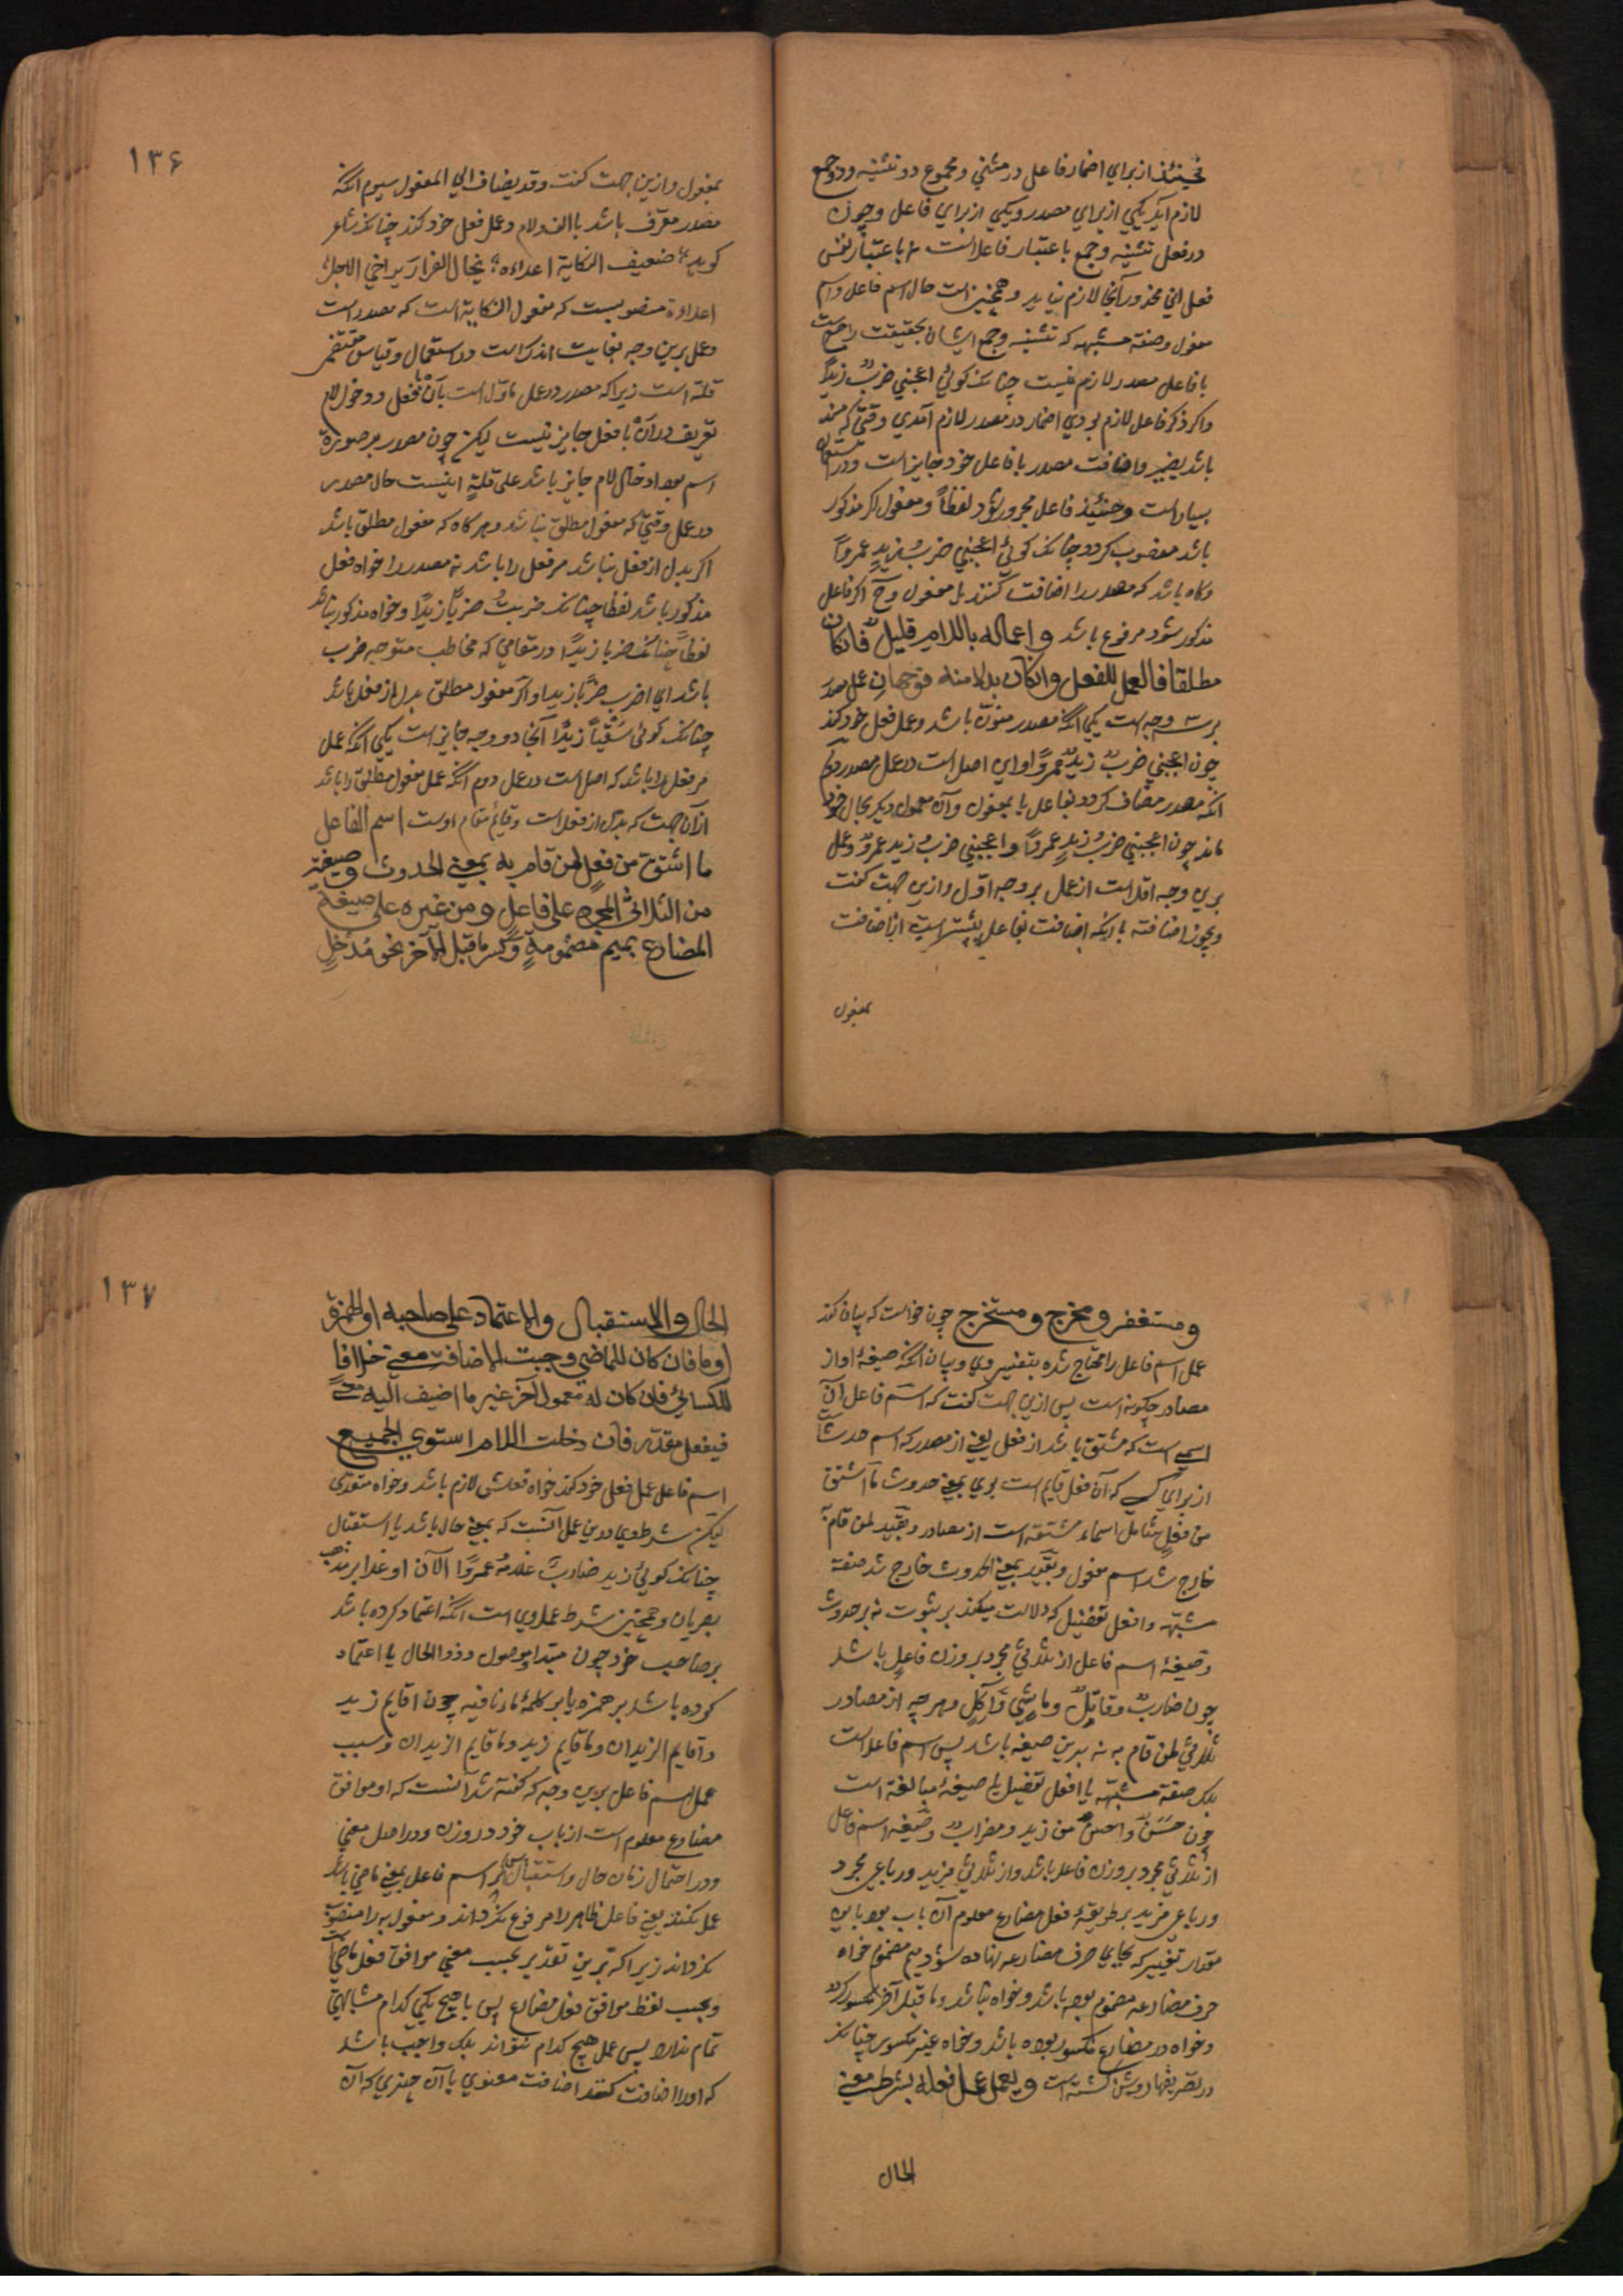 فحینئذ از برای اضمار فاعل در مثنی و مجموع دو تثنیه و دو جمع
لازم آید یکی از برای مصدر و یکی از برای فاعل و چون
در فعل تثنیه و جمع باعتبار فاعل است نه باعتبار نفس
فعل این محذور آنجا لازم نیاید و همچنین است حال اسم فاعل و اسم
مفعول و صفة مشبهه که تثنیه و جمع ایشان بحقیقت راجع است
با فاعل مصدر لازم نیست چنانک کوئی اعجبنی ضربٌ زیداً
و اکر ذکر فاعل لازم بودی اضمار در مصدر لازم آمدی وقتی که مسند
باشد بضمیر و اضافت مصدر با فاعل خود جایز است و در استعمال
بسیار است و حینئذ فاعل مجرور شود لفظاً و مفعول اکر مذکور
باشد منصوب کردد چنانک کوئی اعجبنی ضربُ زیدٍ عمرواً
و کاه باشد که مصدر را اضافت کنند با مفعول و ح اکر فاعل
مذکور شود مرفوع باشد و اعماله باللام قلیل فان کان
مطلقا فالعمل للفعل و ان کان بدلا منه فوجهان عمل مصدر
بر سه وجه است یکی انکه مصدر منوّن باشد و عمل فعل خود کند
چون اعجبنی ضربٌ زیدٌ عمرواً و این اصل است در عمل مصدر دوم
انکه مصدر مضاف کردد بفاعل یا بمفعول و آن معمول دیکر بحال خود
ماند چون اعجبنی ضربُ زیدٍ عمرواً و اعجبنی ضربُ زیدٍ عمروٌ و عمل
برین وجه اقل است از عمل بر وجه اول و ازین جهت کفت
و یجوز اضافته با انکه اضافت بفاعل بیشتر است از اضافت
بمفعول
۱۳۶
بمفعول و ازین جهت کفت و قد یضاف الی المفعول سیوم انکه
مصدر معرّف باشد باالف و لام و عمل فعل خود کند چنانک شاعر
کوید ضعیف النکایة اعداءه یخال الفرار یراخی الاجل
اعداءه منصوبست که مفعول النکایة است که مصدر است
و عمل برین وجه بغایت اندک است در استعمال و قیاس مقتضی
قلة است زیرا که مصدر در عمل ماوّل است بانْ با فعل و دخول لام
تعریف در أنْ با فعل جایز نیست لیکن چون مصدر بر صورة
اسم بود ادخال لام جایز باشد علی قلةٍ اینست حال مصدر
در عمل وقتی که مفعول مطلق نباشد و هر کاه که مفعول مطلق باشد
اکر بدل از فعل نباشد مر فعل را باشد نه مصدر را خواه فعل
مذکور باشد لفظا چنانک ضربتُ ضرباً زیداً و خواه مذکور نباشد
لفظاً چنانک ضربا زیداً در مقامی که مخاطب متوجه ضرب
باشد ای اضرب ضرباً زیدا و اکر مفعول مطلق بدل از فعل باشد
چنانک کوئی سَقْیاً زیدًا آنجا دو وجه جایز است یکی انکه عمل
مر فعل را باشد که اصل است در عمل دوم انکه عمل مفعول مطلق را باشد
از آن جهت که بدل از فعل است و قایم مقام اوست اسم الفاعل
ما اشتق من فعلٍ لمن قام به بمعنی الحدوث و صیغته
من الثلاثی المجرد علی فاعلٍ و من غیره علی صیغة
المضارع بمیم مضمومةٍ و کسر ما قبل الآخر نحو مُدخِلٍ
و مستغفر و مخرج و مستخرج چون خواست که بیان کند
عمل اسم فاعل را محتاج شد بتفسیر وی و بیان انکه صیغهٔ او از
مصادر چکونه است پس ازین جهت کفت که اسم فاعل آن
اسمی است که مشتق باشد از فعل یعنی از مصدر که اسم حدث است
از برای کسی که آن فعل قایم است بوی بمعنی حدوث ما اشتق
من فعلٍ شامل اسماء مشتقه است از مصادر و بقید لمن قام به
خارج شد اسم مفعول و بقید بمعنی الحدوث خارج شد صفة
مشبّهه و افعل تفضیل که دلالت میکند بر ثبوت نه بر حدوث
و صیغهٔ اسم فاعل از ثلاثی مجرد بر وزن فاعل باشد
چون ضاربٌ و قاتلٌ و ماشی و آکل و هر چه از مصادر
ثلاثی لمن قام به نه بدین صیغه باشد پس اسم فاعل است
بلک صفة مشبّهه یا افعل تفضیل یا صیغهٔ مبالغه است
چون حَسَنٌ و احسنُ من زید و مضرابٌ و صیغهٔ اسم فاعل
از ثلاثی مجرد بر وزن فاعل باشد و از ثلاثی مزید و رباعی مجرد
و رباعی مزید بر طریقهٔ فعل مضارع معلوم آن باب بود باین
مقدار تغییر که بجای حرف مضارعه نهاده شود میم مضموم خواه
حرف مضارعه مضموم بوده باشد و خواه نباشد و ما قبل آخر مکسور کردد
و خواه در مضارع مکسور بوده باشد و خواه غیر مکسور چنانک
در تصریفها روشن کشته است و یعمل عمل فعله بشرط معنی
الحال
۱۳۷
الحال و الاستقبال و الاعتماد علی صاحبه او الهمزة
او ما فان کان للماضی وجبت الاضافة معنی خلافا
للکسائی فان کان له معمول آخر غیر ما اضیف الیه معنیً
فبفعل مقدّر فان دخلت اللام استوی الجمیع
اسم فاعل عمل فعل خود کند خواه فعلش لازم باشد و خواه متعدی
لیکن شرط وی درین عمل آنست که بمعنی حال باشد یا استقبال
چنانک کوئی زید ضاربٌ غلامُهُ عمرواً الآن او غدا بر مذهب
بصریان و همچنین شرط عمل وی است انکه اعتماد کرده باشد
بر صاحب خود چون مبتدا و موصول و ذو الحال یا اعتماد
کرده باشد بر همزه یا بر کلمهٔ ماء نافیه چون اقایم زید
و اقایم الزیدان و ما قایم زید و ما قایم الزیدان و سبب
عمل اسم فاعل برین وجه که کفته شد آنست که او موافق
مضارع معلوم است از باب خود در وزن و در اصل معنی
و در احتمال زمان حال و استقبال پس اکر اسم فاعل بمعنی ماضی باشد
عمل نکند یعنی فاعل ظاهر را مرفوع نکرداند و مفعول به را منصوب
نکرداند زیرا که برین تقدیر بحسب معنی موافق فعل ماضی است
و بحسب لفظ موافق فعل مضارع پس با هیچ یکی کدام مشابهتی
تمام ندارد پس عمل هیچ کدام نتواند بلک واجب باشد
که او را اضافت کنند اضافت معنوی با آن چیزی که آن